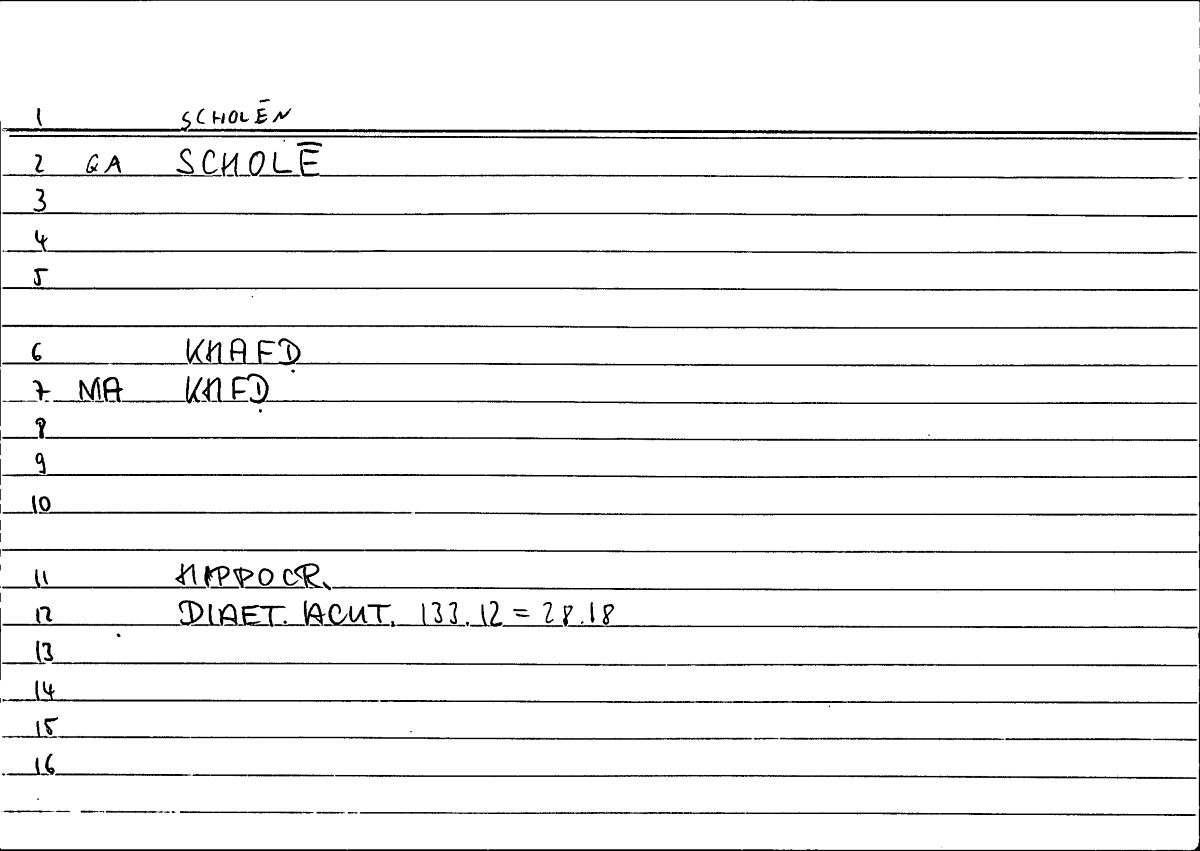 1 SCHOLĒN
2 GA SCHOLĒ
3
4
5
6 KHAFḌ
7 MA KHFḌ
8
9
10
11 HIPPOCR.
12 DIAET. ACUT. 133.12 = 28.18
13
14
15
16